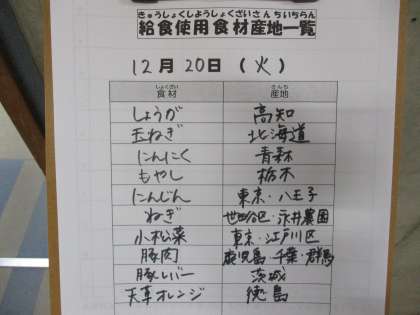 きゅうしょくしようしょくざいさんちいちらん
給食使用食材産地一覧
12月20日(火)
しょくざい さんち
食材 産地
しょうが 高知
玉ねぎ 北海道
にんにく 青森
もやし 栃木
にんじん 東京・八王子
ねぎ 世田谷区・永井農園
小松菜 東京・江戸川区
豚肉 鹿児島・千葉・群馬
豚レバー 茨城
天草オレンジ 徳島